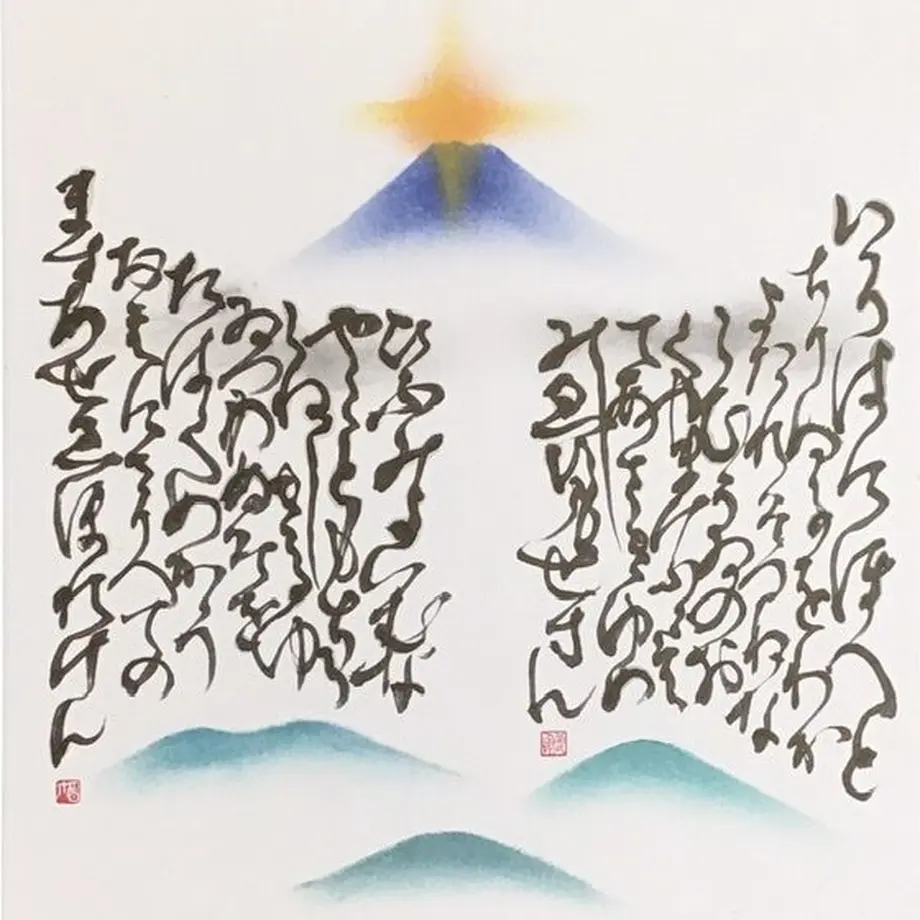 いろはにほへと
ちりぬるをわか
よたれそつねな
らむうゐのお
くやまけふこえ
てあさきゆめ
みしゑひもせすん
ひふみよいむな
やこともちろ
らねしきるゆ
ゐつわぬそを
たはくめかう
おえにさりへての
ますあせゑほれけん